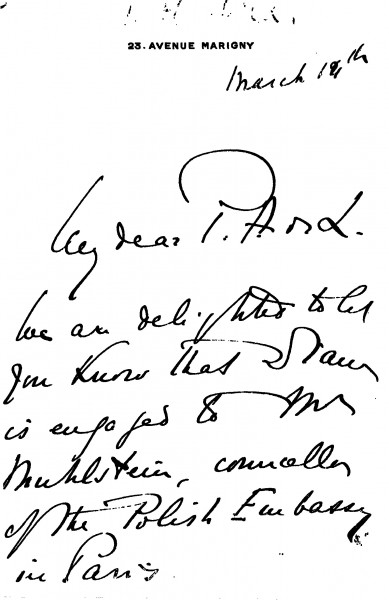 23. AVENUE MARIGNY
March 14th
My dear P. A. and L.
We are delighted to let
you know that Diane
is engaged to Mr
Muhlstein, councellor
of the Polish Embassy
in Paris